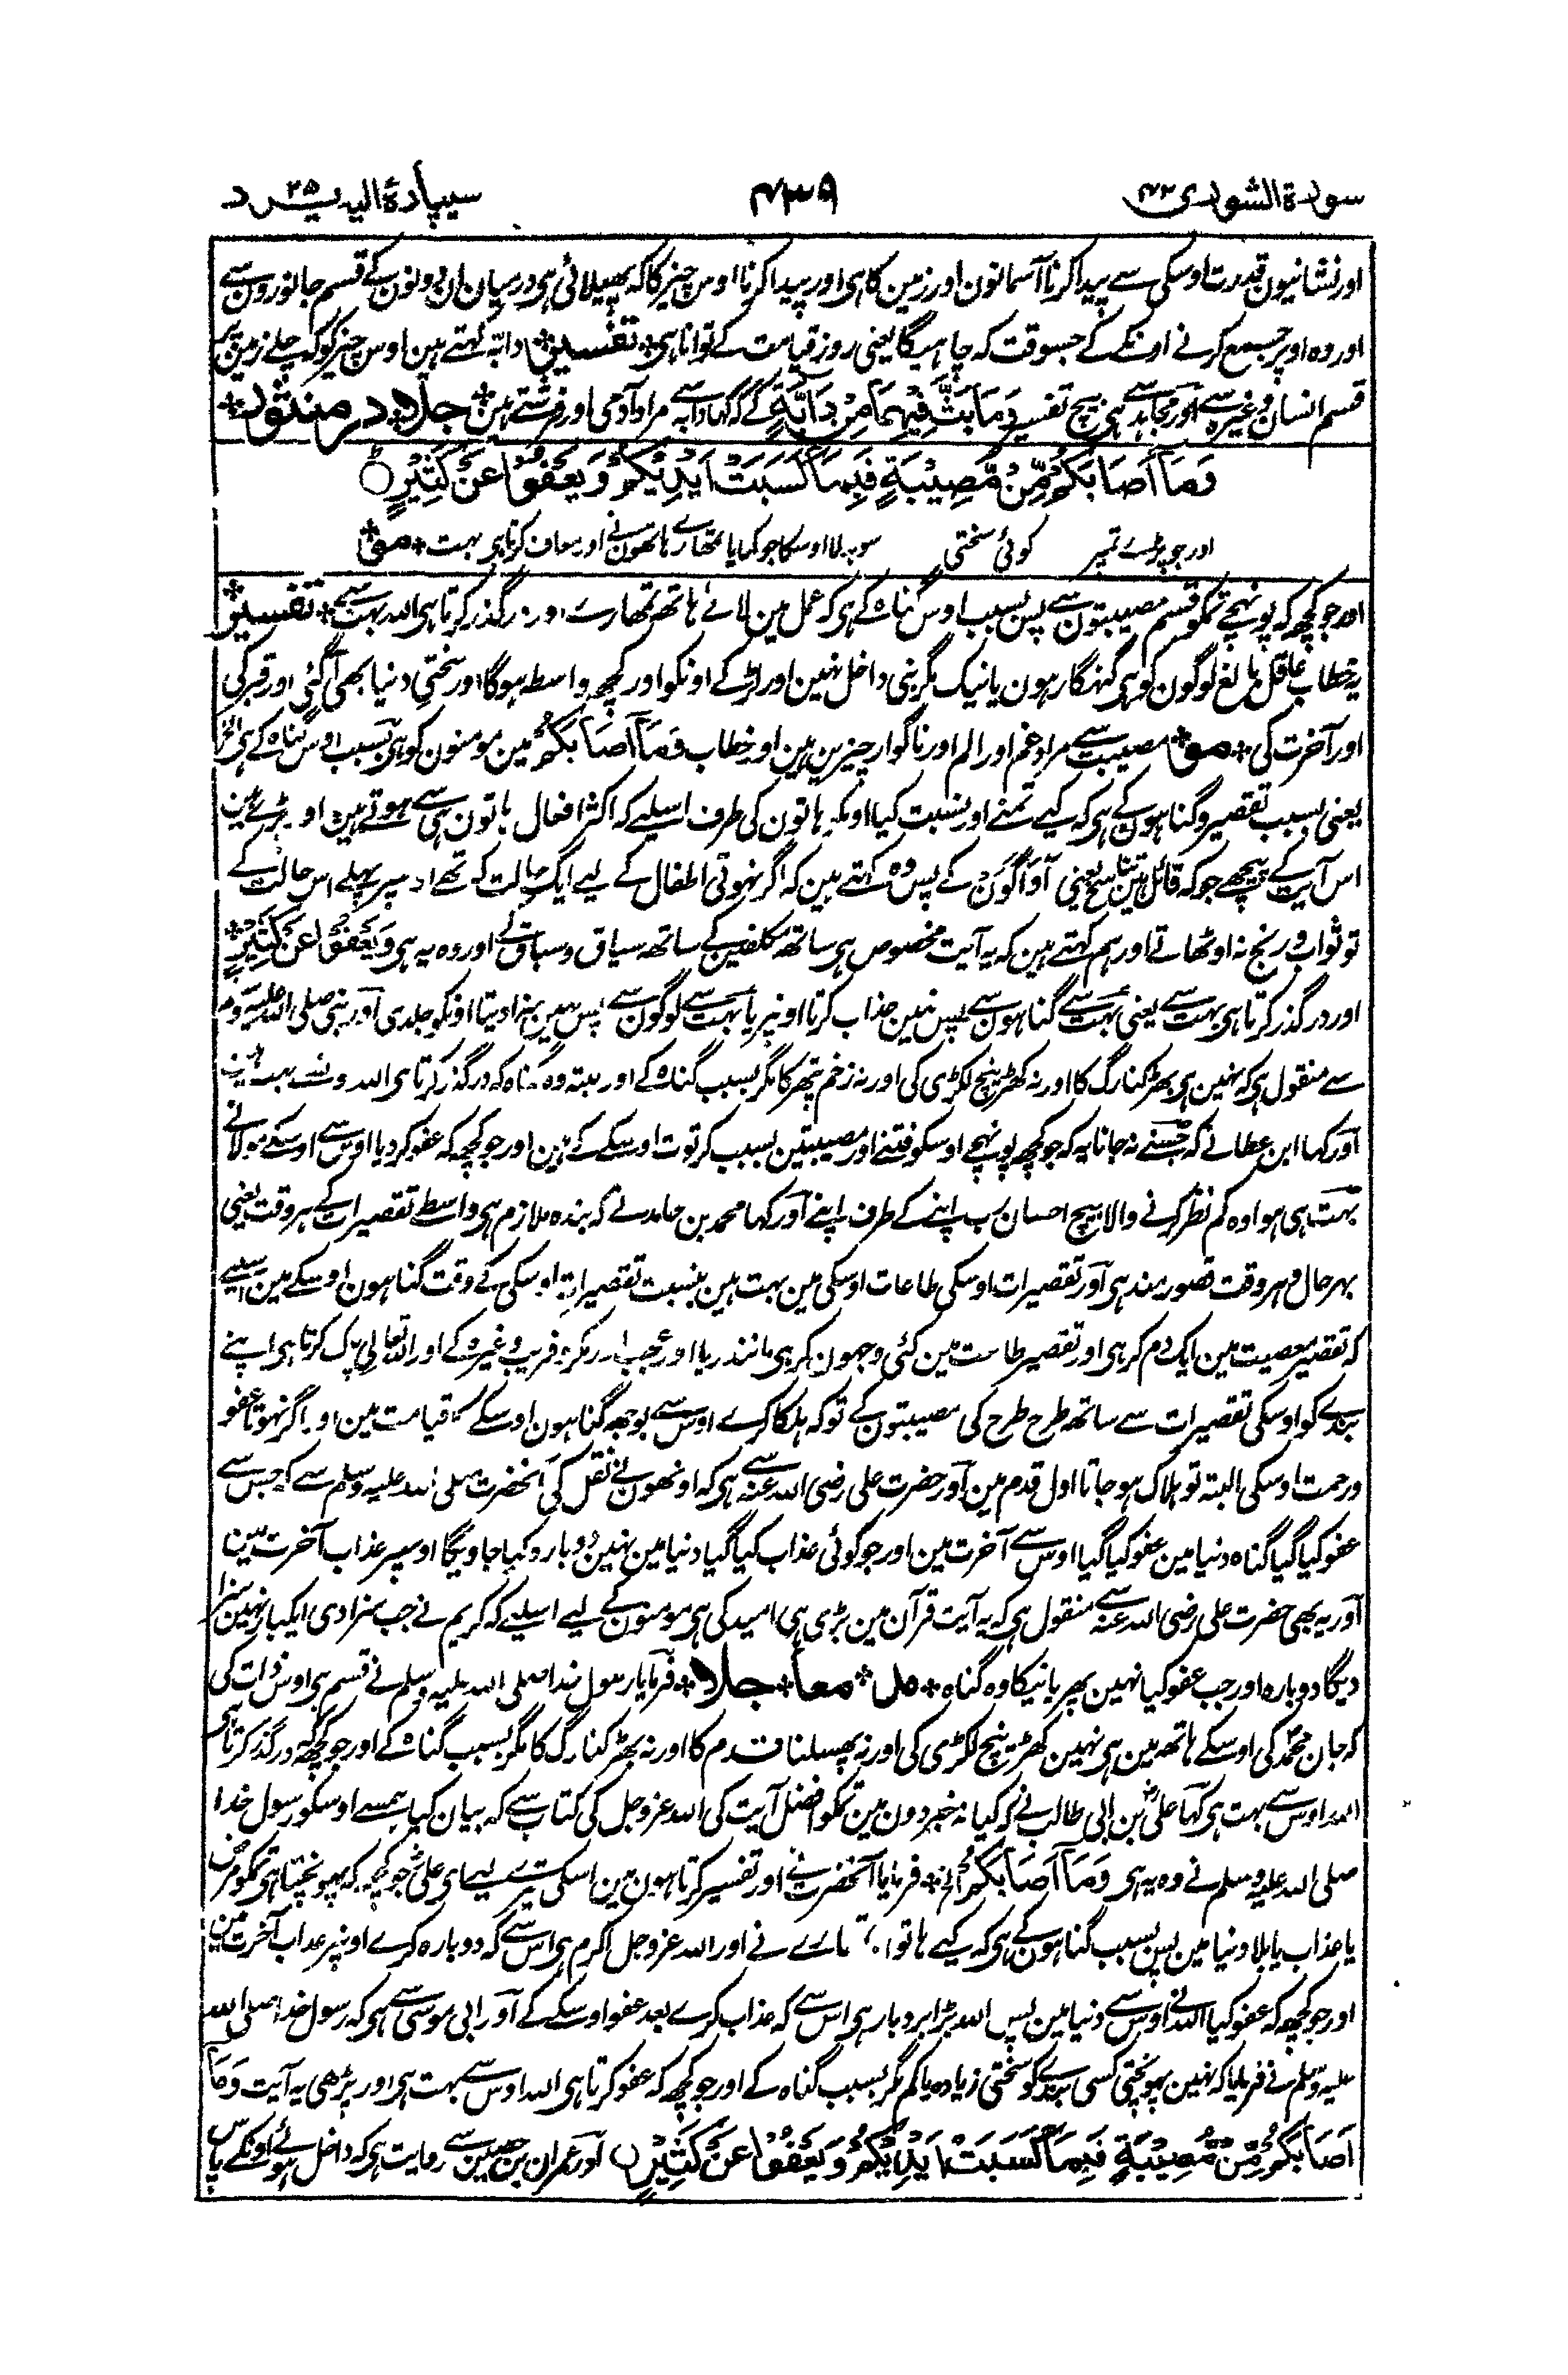 سورة الشوری ۴۲
۴۳۹
سیپارۂ الیہ یرد ۲۵
اور نشانیون قدرت اوسکی سے پیدا کرنا آسمانون اور زمین کا ہی اور پیدا کرنا اوس چیز کا کہ پھیلائی ہی درمیان ان دونون کے قسم جانورون سے
اور وہ اوپر جمع کرنے اونکے کے جسوقت کہ چاہیگا یعنی روز قیامت کے توانا ہی * تفسیر * دابّہ کہتے ہین اوس چیز کو کہ چلے زمین پر
قسم انسان وغیرہ سے اور مجاہد سے ہی بیچ تفسیر وَمَا بَثَّ فِیْہِمَا مِنْ دَابَّۃٍ کے کہ کہا دابہ سے مراد آدمی اور فرشتے ہین * جلا * در منثور *
وَمَا أَصَابَكُمْ مِّنْ مُّصِيْبَةٍ فَبِمَا كَسَبَتْ أَيْدِيْكُمْ وَيَعْفُوْا عَنْ كَثِيْرٍ ○
اور جو پڑے تمپر کوئی سختی سو بدلا اوسکا جو کمایا تمھارے ہاتھون نے اور معاف کرتا ہی بہت * مو *
اور جو کچھ کہ پونہچے تمکو قسم مصیبتون سے پس بسبب اوس گناہ کے ہی کہ عمل مین لائے ہاتھ تمھارے اور درگذر کرتا ہی اللہ بہت سے * تفسیر *
یہ خطاب عاقل بالغ لوگون کو ہی گنہگار ہون یا نیک مگر نبی داخل نہین اور لڑکے اونکو اور کچھ واسطہ ہوگا اور سختی دنیا بھی آگئی اور قبر کی
اور آخرت کی * مو * مصیبت سے مراد غم اور الم اور ناگوار چیزین ہین اور خطاب وَمَا أَصَابَكُمْ مین مومنون کو ہی بسبب اوس گناہ کے ہی الخ
یعنی بسبب تقصیر و گناہون کے ہی کہ کیے تمنے اور نسبت کیا اونکو ہاتون کی طرف اسلیے کہ اکثر افعال ہاتون ہی سے ہوتے ہین اور پڑے ہین
اس آیت کے پیچھے جو کہ قائل ہین تناسخ یعنی آواگون کے پس وہ کہتے ہین کہ اگر نہوتی اطفال کے لیے ایک حالت کہ تھے اوسپر پہلے اس حالت کے
تو ثواب و رنج نہ اوٹھاتے اور ہم کہتے ہین کہ یہ آیت مخصوص ہی ساتھ مکلفین کے ساتھ سیاق و سباق کے اور وہ یہ ہی وَيَعْفُوْا عَنْ كَثِيْرٍ *
اور درگذر کرتا ہی بہت سے یعنی بہت سے گناہون سے پس نہین عذاب کرتا اونپر یا بہت سے لوگون سے پس نہین سزا دیتا اونکو جلدی اور نبی صلی اللہ علیہ وسلم
سے منقول ہی کہ نہین ہی پھڑکنا رگ کا اور نہ کھڑپنچ لکڑی کی اور نہ زخم پتھر کا مگر بسبب گناہ کے اور البتہ وہ گناہ کہ درگذر کرتا ہی اللہ بہت ہین
اور کہا ابن عطا نے کہ جسنے نہ جانا یہ کہ جو کچھ پونہچے اوسکو فتنے اور مصیبتین بسبب کرتوت اوسکے کے ہین اور جو کچھ کہ عفو کر دیا اوس سے اوسکے مولا نے
بہت ہی ہوا وہ کم نظر کرنے والا بیچ احسان رب اپنے کے طرف اپنے اور کہا محمد بن حامد نے کہ بندہ ملازم ہی واسطے تقصیرات کے ہر وقت یعنی
بہر حال و ہر وقت قصورمند ہی اور تقصیرات اوسکی طاعات اوسکی مین بہت ہین بنسبت تقصیرات اوسکی کے وقت گناہون اوسکے مین اسلیے
کہ تقصیر معصیت مین ایک دم کر ہی اور تقصیر طاعت مین کئی وجہون کر ہی مانند ریا اور عجب اور مکر و فریب وغیرہ کے اور اللہ تعالی پاک کرتا ہی اپنے
بندے کو اوسکی تقصیرات سے ساتھ طرح طرح کی مصیبتون کے تو کہ ہلکا کرے اوس سے بوجھ گناہون اوسکے کا قیامت مین اور اگر نہوتا عفو
و رحمت اوسکی البتہ تو ہلاک ہو جاتا اول قدم مین اور حضرت علی رضی اللہ عنہ سے ہی کہ اونھون نے نقل کی آنحضرت صلی اللہ علیہ وسلم سے کہ جس سے
عفو کیا گیا گناہ دنیا مین عفو کیا گیا اوس سے آخرت مین اور جو کوئی عذاب کیا گیا دنیا مین نہین دوبارہ کیا جاویگا اوسپر عذاب آخرت مین
اور یہ بھی حضرت علی رضی اللہ عنہ سے منقول ہی کہ یہ آیت قرآن مین بڑی ہی امید کی ہی مومنون کے لیے اسلیے کہ کریم نے جب سزا دی ایکبار نہین سزا
دیگا دوبارہ اور جب عفو کیا نہین پھر یا نیکا وہ گناہ * مل * معا * جلا * فرمایا رسول خدا صلی اللہ علیہ وسلم نے قسم ہی اوس ذات کی
کہ جان محمد کی اوسکے ہاتھ مین ہی نہین کھڑپنچ لکڑی کی اور نہ پھسلنا قدم کا اور نہ پھڑکنا رگ کا مگر بسبب گناہ کے اور جو کچھ کہ درگذر کرتا ہی
اللہ اوس سے بہت ہی کہا علی بن ابی طالب نے کہ کیا نہ خبر دون مین تمکو افضل آیت کی اللہ عزوجل کی کتاب سے کہ بیان کیا ہمسے اوسکو رسول خدا
صلی اللہ علیہ وسلم نے وہ یہ ہی وَمَا أَصَابَكُمْ الخ * فرمایا آنحضرت نے اور تفسیر کرتا ہون مین اسکی تیرے لیے ای علی جو کچھ کہ پہونچتا ہی تمکو مرض
یا عذاب یا بلا دنیا مین پس بسبب گناہون کے ہی کہ کیے ہاتون تمہارے نے اور اللہ عزوجل اکرم ہی اس سے کہ دوبارہ کرے اونپر عذاب آخرت مین
اور جو کچھ کہ عفو کیا اللہ نے اوس سے دنیا مین پس اللہ بڑا بردبار ہی اس سے کہ عذاب کرے بعد عفو اوسکے کے اور ابی موسی سے ہی کہ رسول خدا صلی اللہ
علیہ وسلم نے فرمایا کہ نہین پہونچتی کسی بندے کو سختی زیادہ یا کم مگر بسبب گناہ کے اور جو کچھ کہ عفو کرتا ہی اللہ اوس سے بہت ہی اور پڑھی یہ آیت وَمَا
أَصَابَكُمْ مِّنْ مُّصِيْبَةٍ فَبِمَا كَسَبَتْ أَيْدِيْكُمْ وَيَعْفُوْا عَنْ كَثِيْرٍ ○ اور عمران بن حصین سے روایت ہی کہ داخل ہوئے اونکے پاس